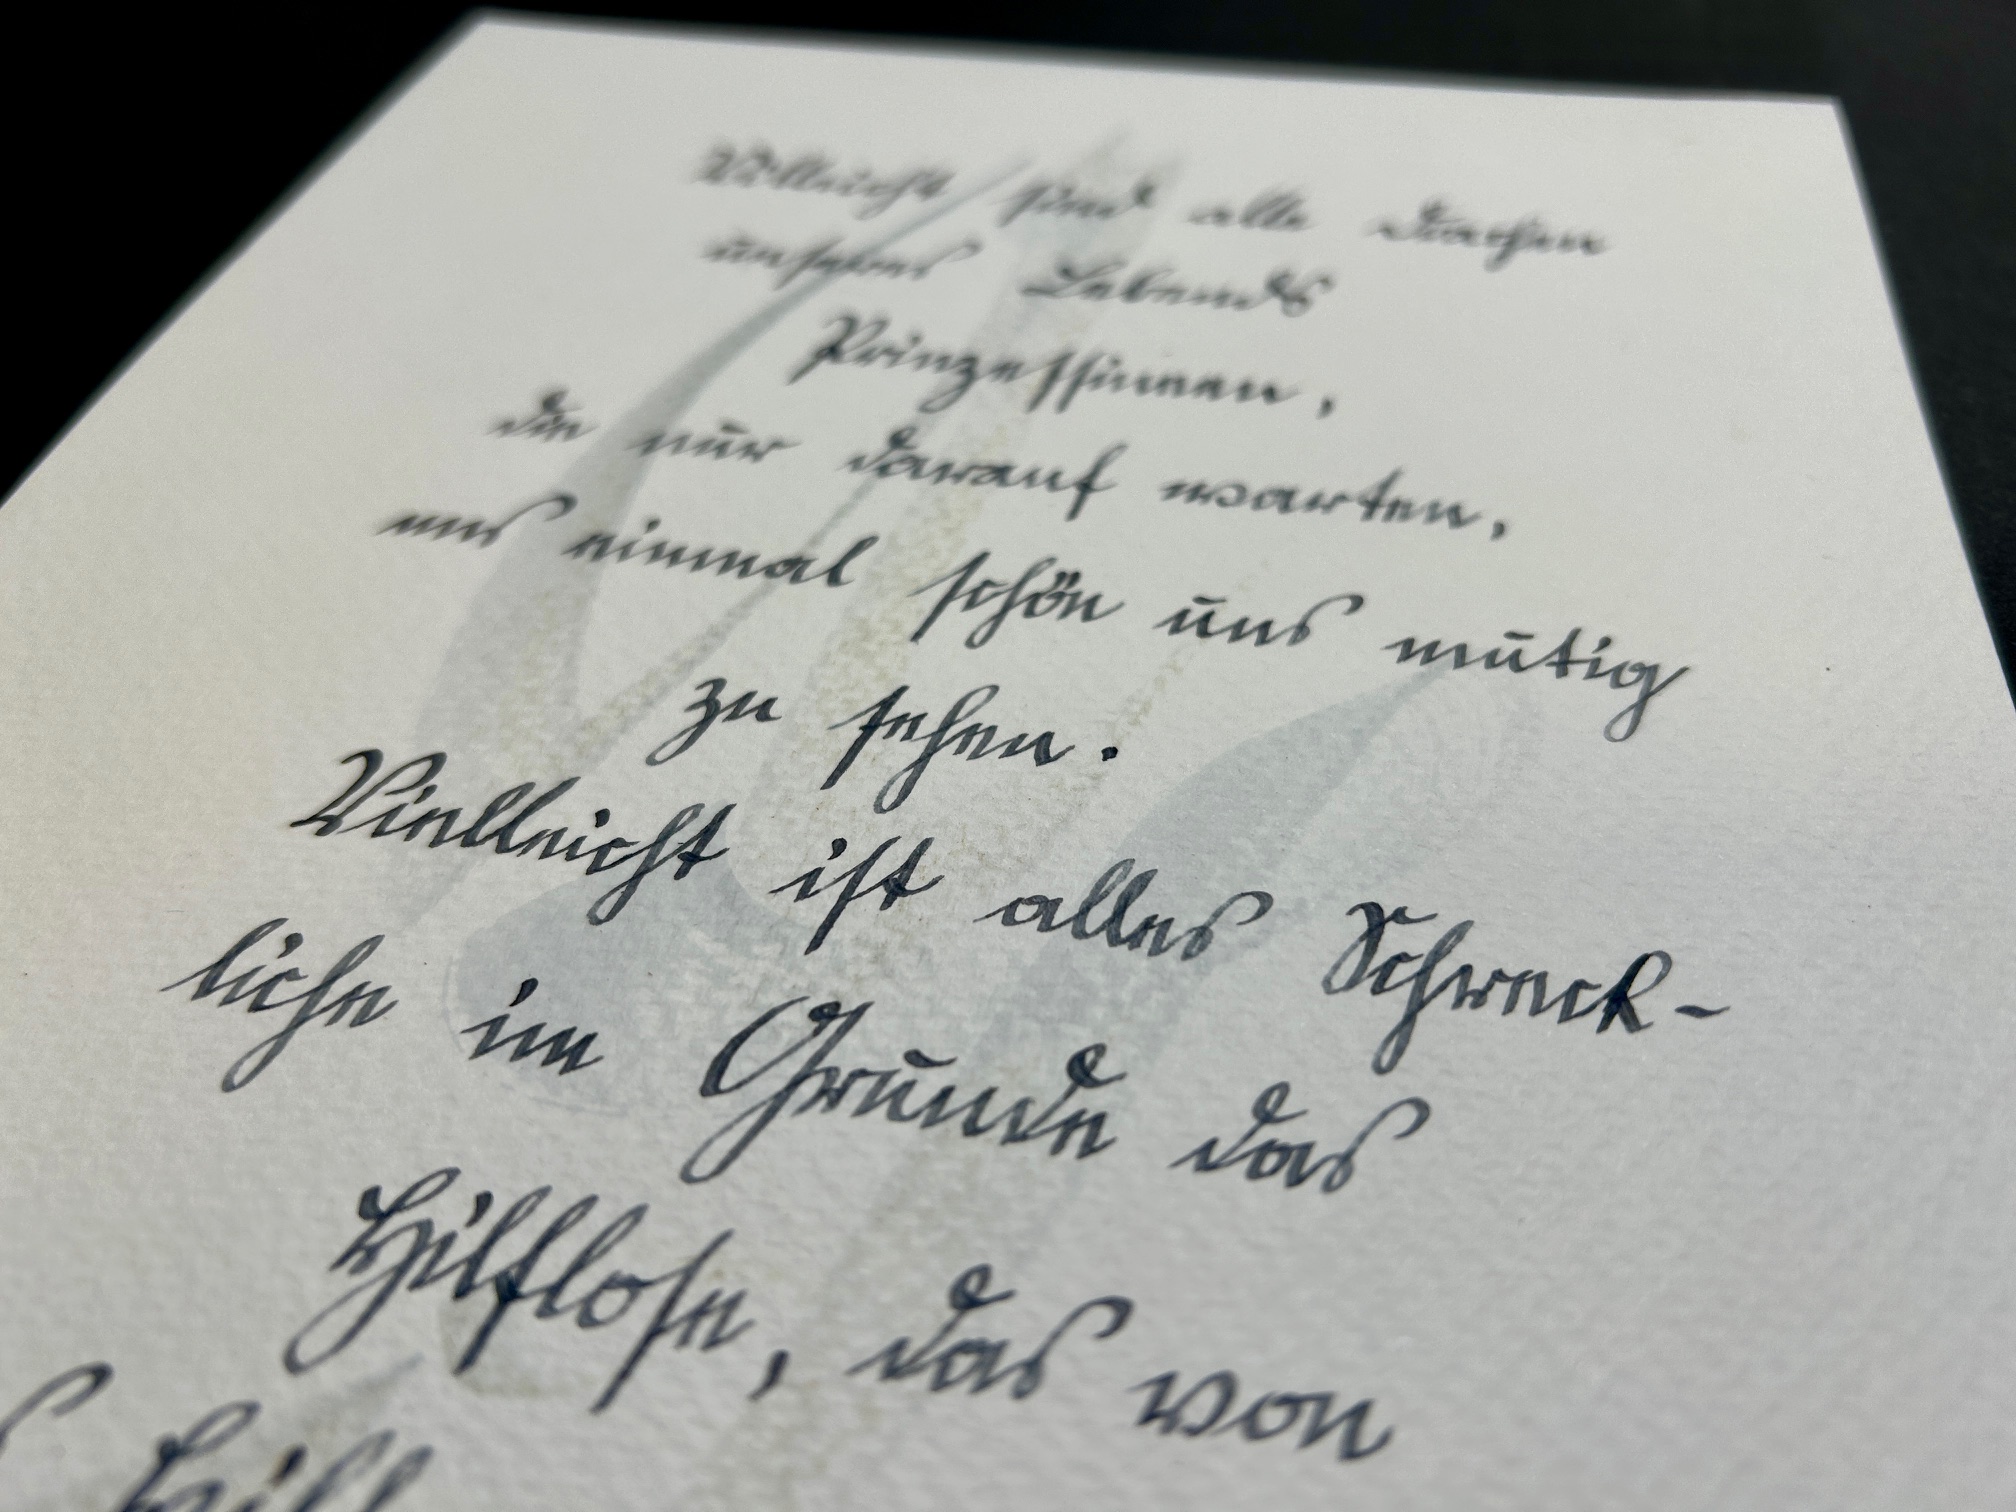 Vielleicht sind alle Drachen
unseres Lebends
Prinzessinnen,
die nur darauf warten,
uns einmal schön uns mutig
zu sehen.
Vielleicht ist alles Schreck-
liche im Grunde das
Hilflose, das von